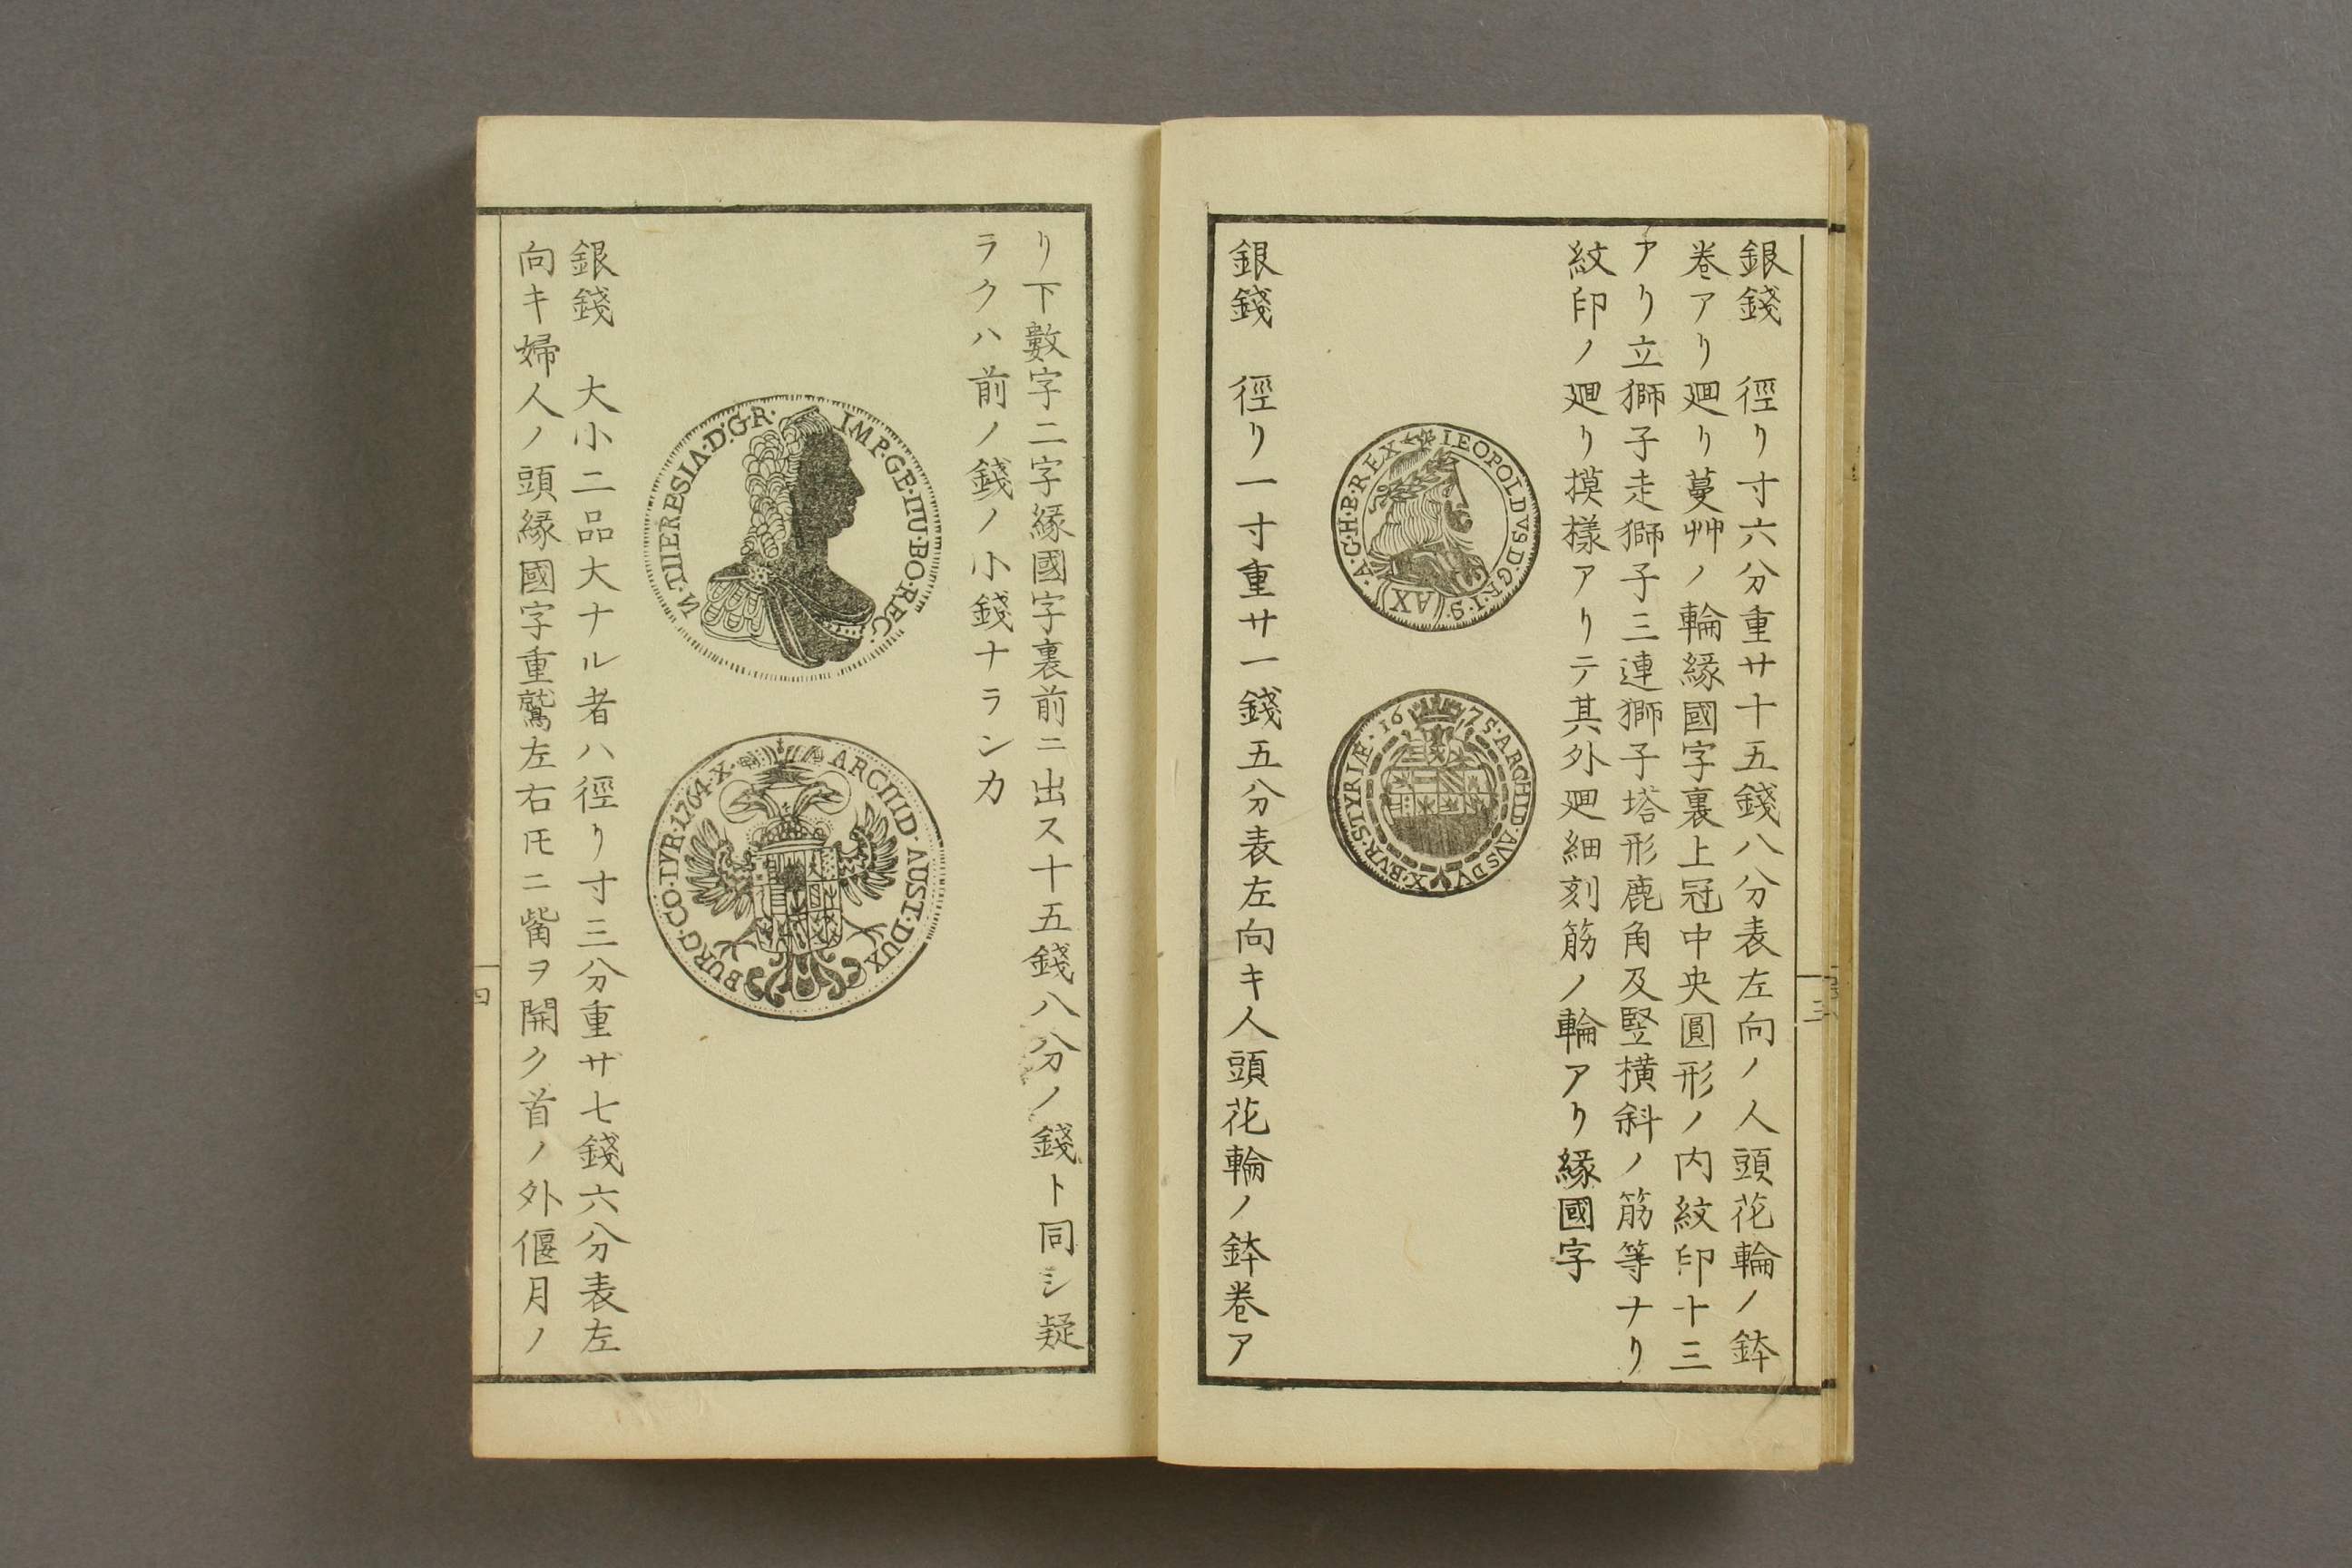 銀錢　徑リ寸六分重サ十五錢八分表左向ノ人頭花輪ノ鉢
卷アリ廻リ蔓艸ノ輪緣國字裏上冠中央圓形ノ内紋印十三
アリ立獅子走獅子三連獅子塔形鹿角及竪橫斜ノ筋等ナリ
紋印ノ廻リ摸樣アリテ其外廻細刻筋ノ輪アリ緣國字
IEOPOLDVS·D:G·R·I·S·
(AX)
·A·G·H·B·REX
16 75·ARCHID·AVSDV
X·BVR·STYRIÆ·
銀錢　徑リ一寸重サ一錢五分表左向キ人頭花輪ノ鉢卷ア
三
リ下數字二字緣國字裏前ニ出ス十五錢八分ノ錢ト同シ疑
ラクハ前ノ錢ノ小錢ナランカ
M·TIIERESIA·D:G·R·
IMP·GE·IIU·BO·REG·
ARCIIID·AUST·DUX
BURG·CO·TYR·1764·X·
銀錢　大小二品大ナル者ハ徑リ寸三分重サ七錢六分表左
向キ婦人ノ頭緣國字重鷲左右𪜈ニ觜ヲ開ク首ノ外偃月ノ
四